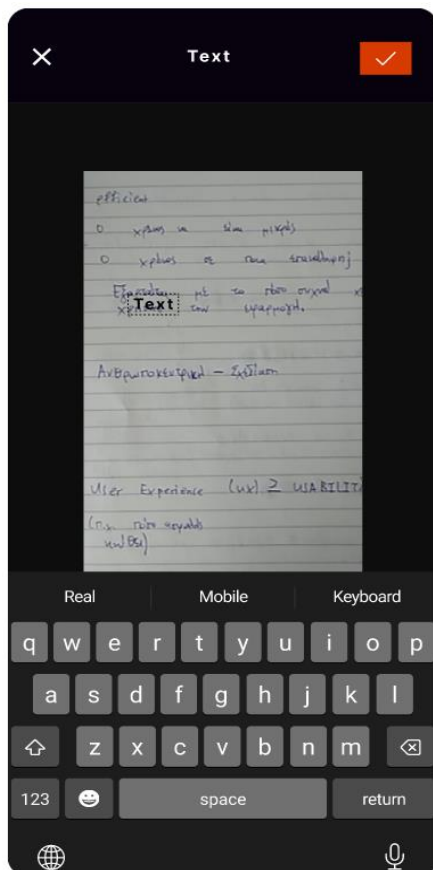 Text
efficient
Ο χρόνος να είναι μικρός
Ο χρόνος σε ποια επανάληψη
Εξαρτάται με το πόσο συχνά
Text των εφαρμογή.
Ανθρωποκεντρική – Σχεδίαση
User Experience (UX) ≥ USABILIT
(π.χ. πόσο
Real Mobile Keyboard
q w e r t y u i o p
a s d f g h j k l
z x c v b n m
123 space return